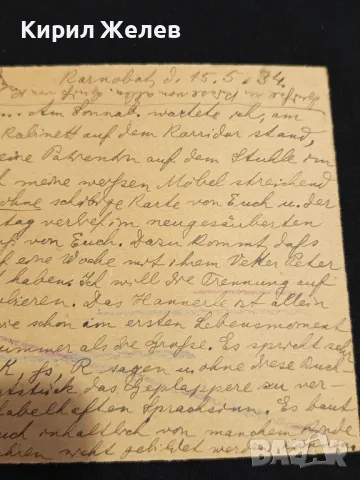 Кирил Желев
Karnobat, d. 15.5.34.
... Am Sonnab. wartete ich, am
Kabinett auf dem Korridor stand,
eine Patientin auf dem Stuhle im
h meine weißen Möbel streichend
ohne schöne Karte von Euch u. der
tag verbot im neugesäuberten
von Euch. Dazu kommt, daß
h eine Woche mit ihrem Vetter Peter
haben. Ich will die Trennung auf
bieren. Das Hannerle ist allein
wie schon am ersten Lebensmoment
immer als die Große. Es spricht sehr
K, fs, R sagen u. ohne diese Buch
kststück das Geplappere zu ver-
fabelhaften Sprachsinn. Es baut
uch inhaltlich von manchem
nicht gebildet werden
BAZAR.BG